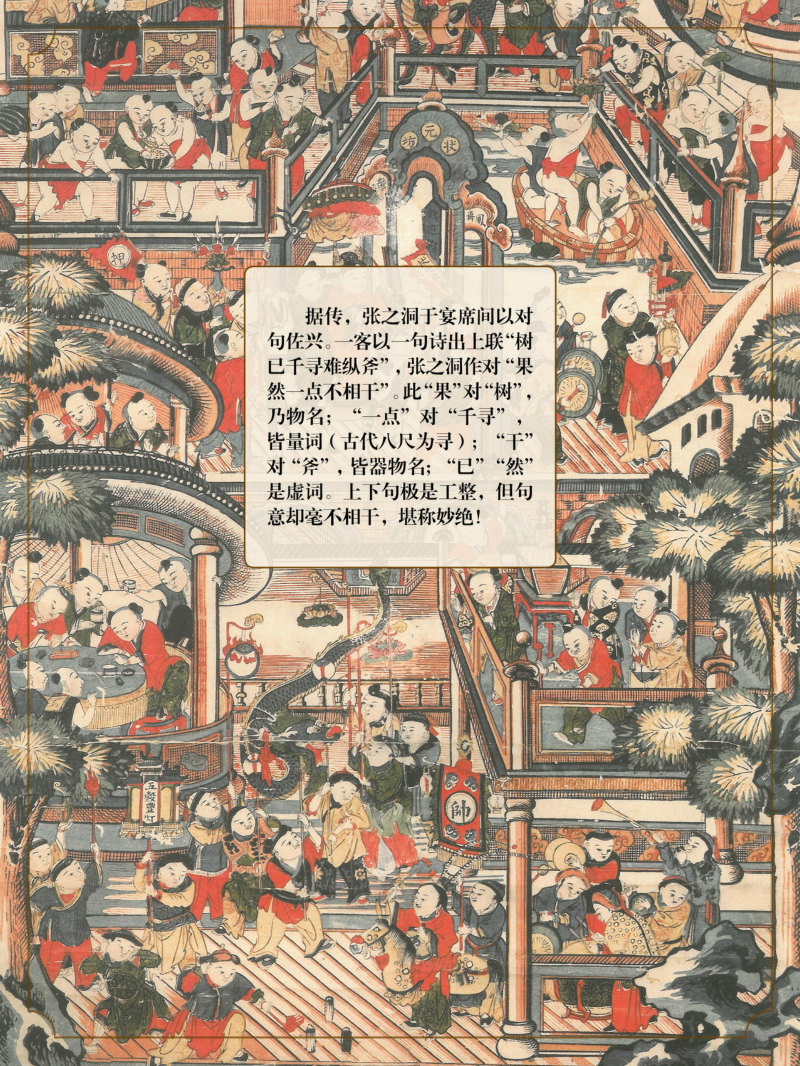 坊元状
押
据传，张之洞于宴席间以对
句佐兴。一客以一句诗出上联“树
已千寻难纵斧”，张之洞作对“果
然一点不相干”。此“果”对“树”，
乃物名；“一点”对“千寻”，
皆量词（古代八尺为寻）；“干”
对“斧”，皆器物名；“已”“然”
是虚词。上下句极是工整，但句
意却毫不相干，堪称妙绝！
五谷豊灯
帥